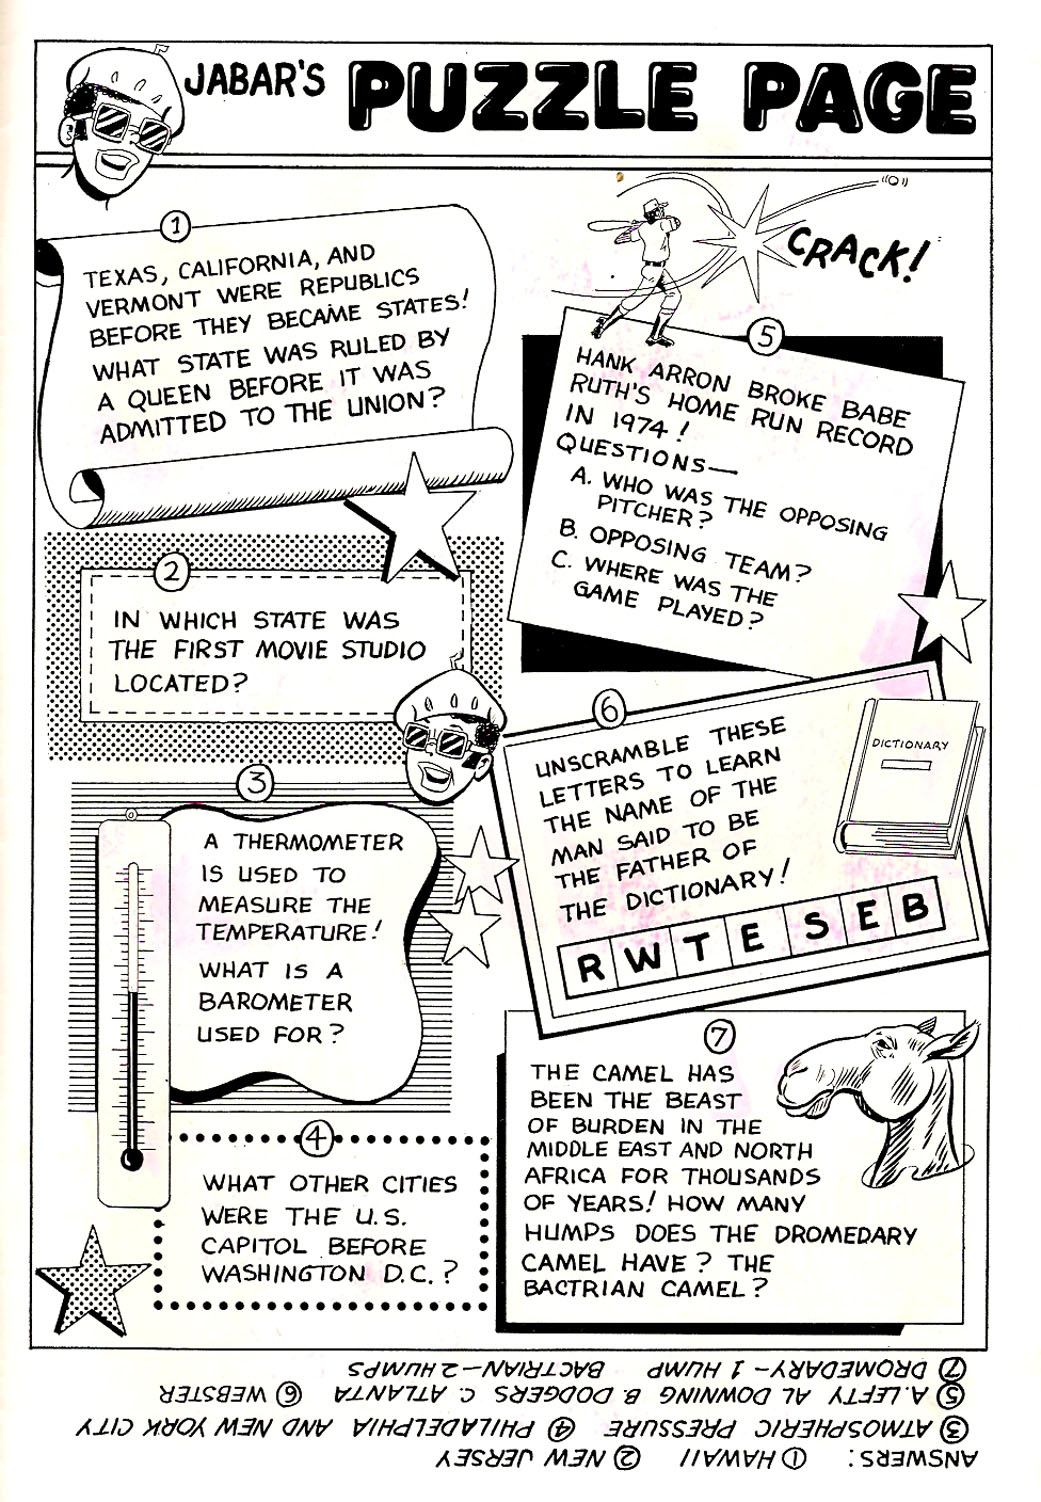 JABAR'S PUZZLE PAGE
1
TEXAS, CALIFORNIA, AND
VERMONT WERE REPUBLICS
BEFORE THEY BECAME STATES!
WHAT STATE WAS RULED BY
A QUEEN BEFORE IT WAS
ADMITTED TO THE UNION?
2
IN WHICH STATE WAS
THE FIRST MOVIE STUDIO
LOCATED?
3
A THERMOMETER
IS USED TO
MEASURE THE
TEMPERATURE!
WHAT IS A
BAROMETER
USED FOR?
4
WHAT OTHER CITIES
WERE THE U.S.
CAPITOL BEFORE
WASHINGTON D.C.?
CRACK!
5
HANK ARRON BROKE BABE
RUTH'S HOME RUN RECORD
IN 1974!
QUESTIONS—
A. WHO WAS THE OPPOSING
PITCHER?
B. OPPOSING TEAM?
C. WHERE WAS THE
GAME PLAYED?
6
UNSCRAMBLE THESE
LETTERS TO LEARN
THE NAME OF THE
MAN SAID TO BE
THE FATHER OF
THE DICTIONARY!
DICTIONARY
R W T E S E B
7
THE CAMEL HAS
BEEN THE BEAST
OF BURDEN IN THE
MIDDLE EAST AND NORTH
AFRICA FOR THOUSANDS
OF YEARS! HOW MANY
HUMPS DOES THE DROMEDARY
CAMEL HAVE? THE
BACTRIAN CAMEL?
ANSWERS: 1 HAWAII 2 NEW JERSEY
3 ATMOSPHERIC PRESSURE 4 PHILADELPHIA AND NEW YORK CITY
5 A. LEFTY AL DOWNING B. DODGERS C. ATLANTA 6 WEBSTER
7 DROMEDARY—1 HUMP BACTRIAN—2 HUMPS